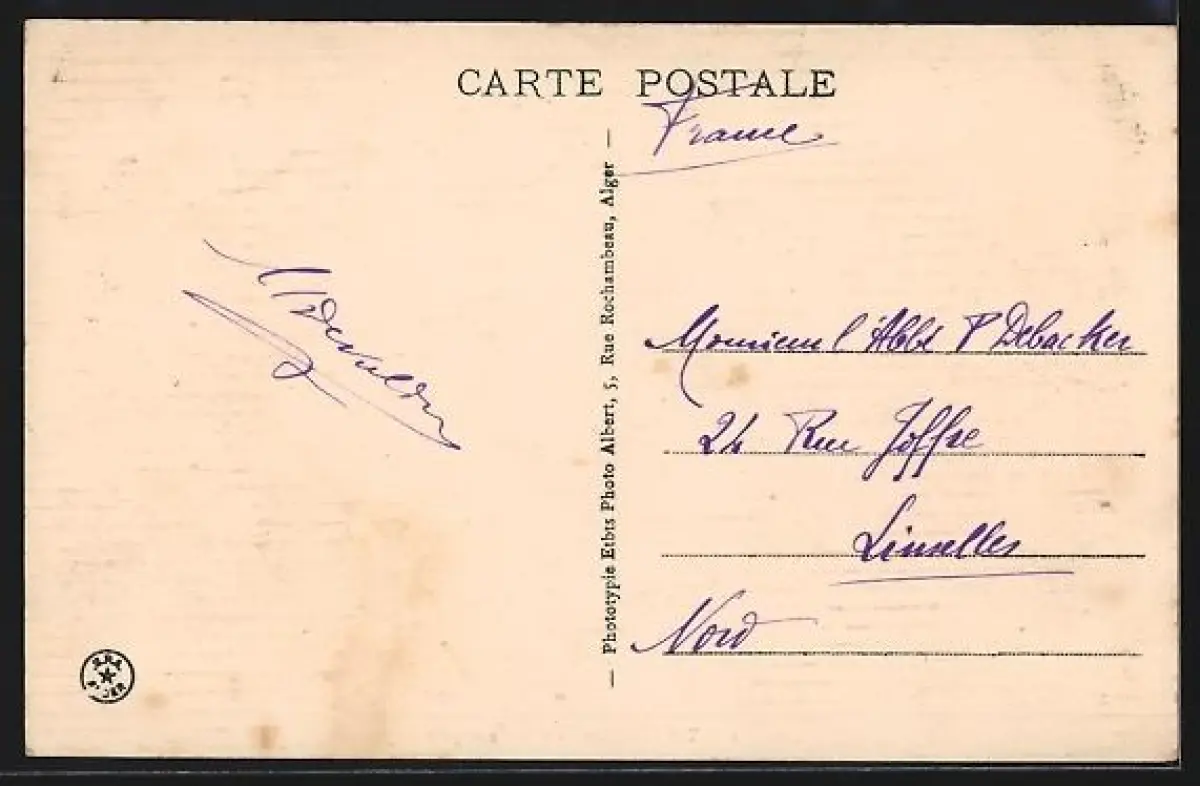 CARTE POSTALE
France
Monsieur l'Abbé P Debacker
24 Rue Joffre
Linselles
Nord
— Phototypie Etbts Photo Albert, 5, Rue Rochambeau, Alger —